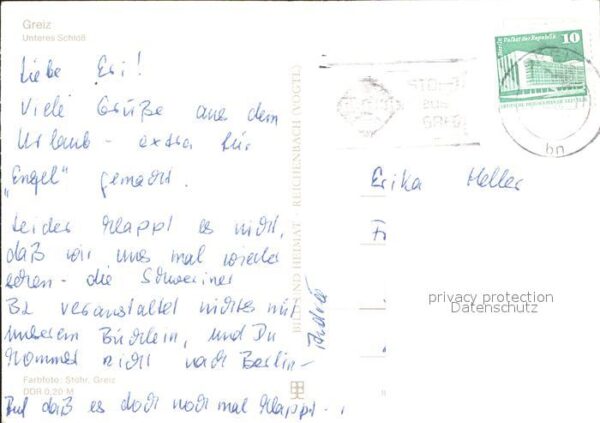 Greiz
Unteres Schloß
Liebe Eri!
Viele Grüße aus dem
Urlaub - extra für
„Engel" gemacht.
Leider klappt es nicht,
daß wir uns mal wieder
sehen - die Schweriner
BZ veranstaltet nichts mit
unserem Büchlein, und Du
kommst nicht nach Berlin -
daß es doch noch mal klappt -
Farbfoto: Stöhr, Greiz
DDR 0,20 M
BILD UND HEIMAT · REICHENBACH (VOGTL)
10
Berlin Palast der Republik
bn
Erika Heller
F
privacy protection
Datenschutz